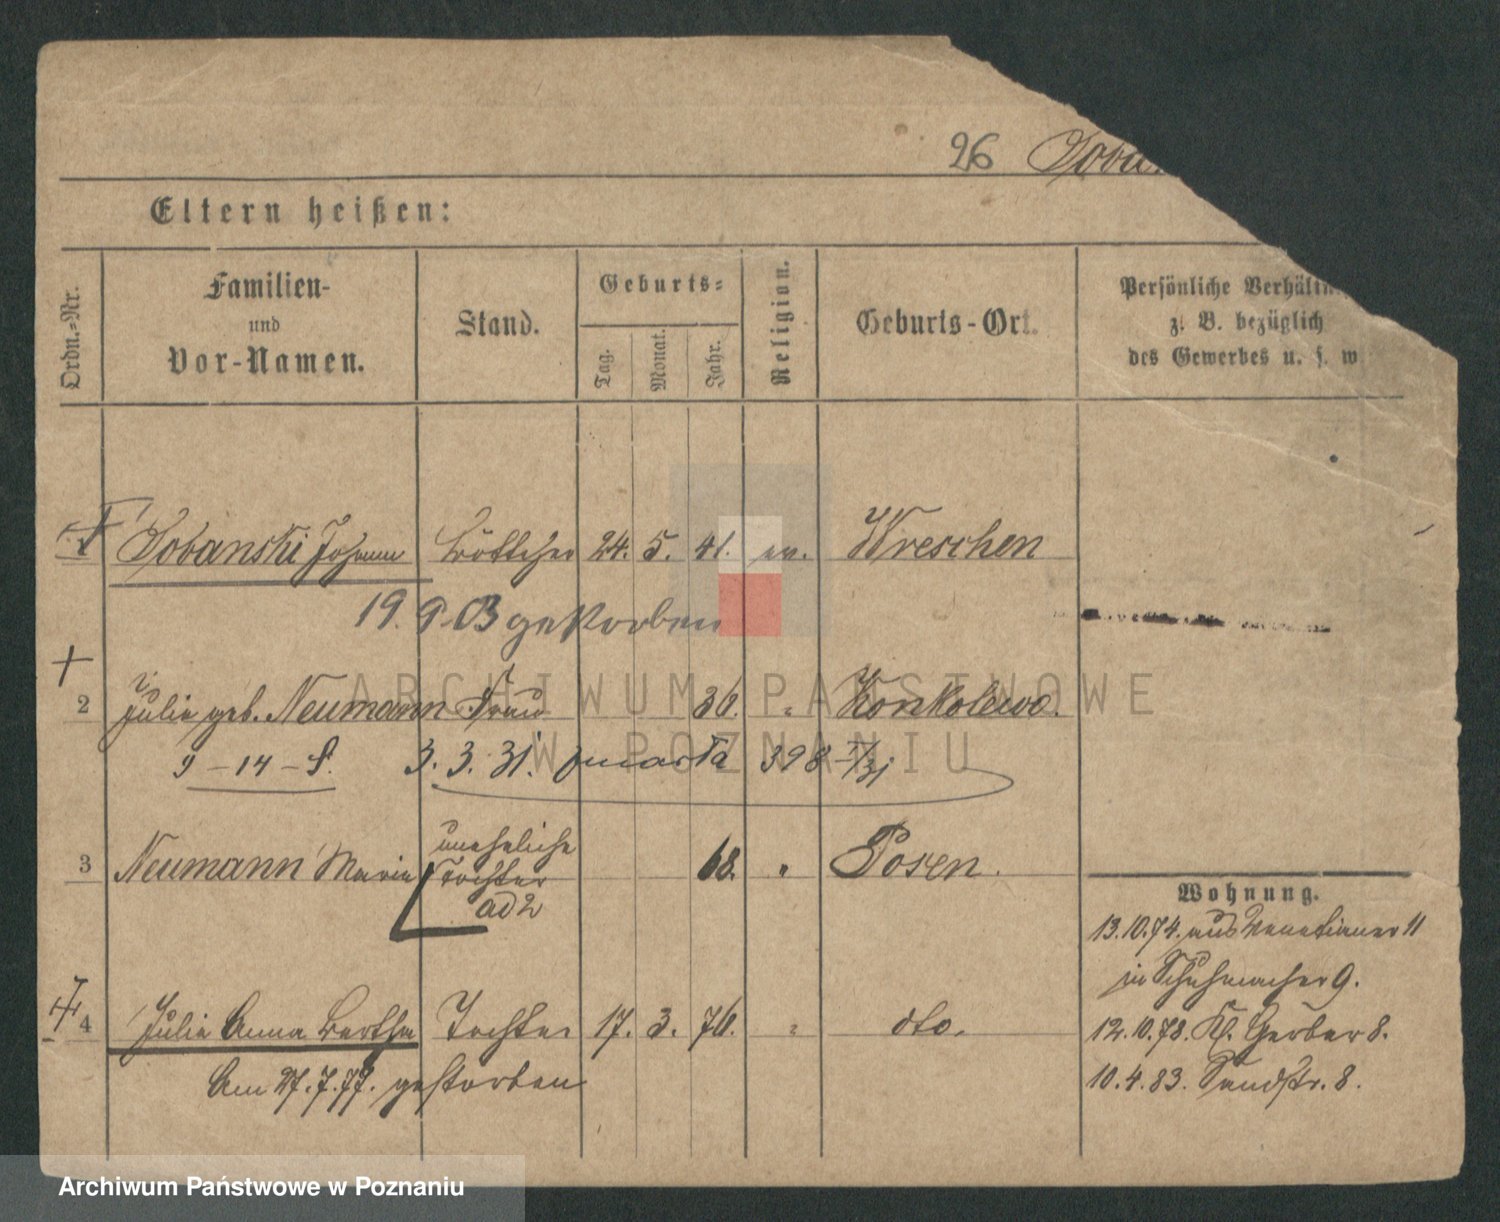 26 Soba
Eltern heißen:
Ordn.-Nr.
Familien-
und
Vor-Namen.
Stand.
Geburts-
Tag.
Monat.
Jahr.
Religion.
Geburts-Ort.
Persönliche Verhältn
z. B. bezüglich
des Gewerbes u. s. w
1 Sobanski Johann Böttcher 24. 5. 41. ev. Wreschen
19. 9. 03 gestorben
2 Julie geb. Neumann Frau 36. " Konkolewo.
9-14-S. 3. 3. 31. 398 I/31
3 Neumann Marie uneheliche
Tochter
ad 2
68. " Posen.
4 Julie Anna Bertha Tochter 17. 3. 76. " dto.
Am 27. 7. 77. gestorben
Wohnung.
13.10.74. aus Venetianer 11
in Schuhmacher 9.
12.10.78. Kl. Gerber 8.
10.4.83. Sandstr. 8.
ARCHIWUM PAŃSTWOWE
W POZNANIU
Archiwum Państwowe w Poznaniu